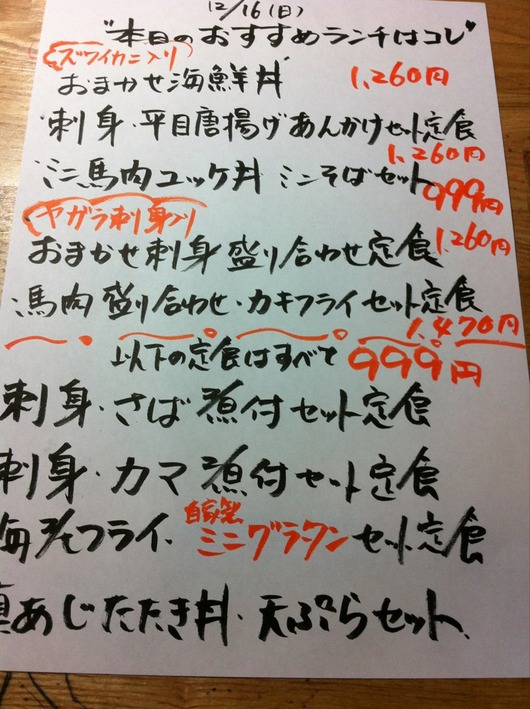 12/16(日)
"本日のおすすめランチはコレ♥
ズワイカニ入り
おまかせ海鮮丼 1,260円
刺身・平目唐揚げあんかけセット定食
1,260円
ミニ馬肉ユッケ丼 ミニそばセット 999円
ヤガラ刺身入り
おまかせ刺身盛り合わせ定食 1,260円
馬肉盛り合わせ・カキフライセット定食
1,470円
以下の定食はすべて 999円
刺身・さば煮付セット定食
刺身・カマ煮付セット定食
自家製
フライ・ミニグラタンセット定食
真あじたたき丼・天ぷらセット